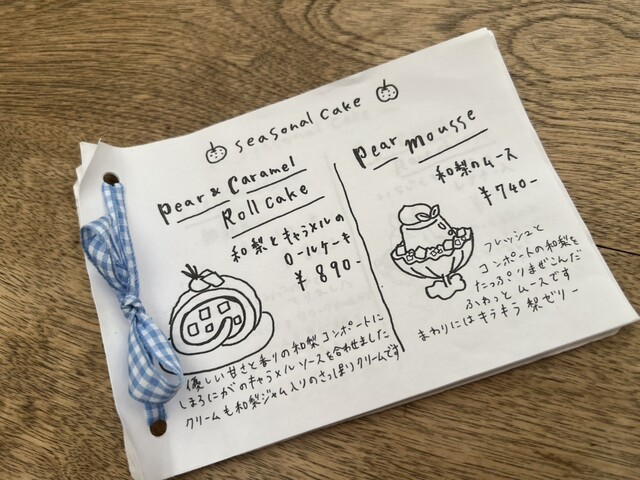 seasonal cake
Pear & Caramel
Roll cake
和梨とキャラメルの
ロールケーキ
¥890-
優しい甘さと香りの和梨コンポートに
ほろにがのキャラメルソースを合わせました
クリームも和梨ジャム入りのさっぱりクリームです
Pear mousse
和梨のムース
¥740-
フレッシュと
コンポートの和梨を
たっぷりまぜこんだ
ふわっとムースです
まわりにはキラキラ梨ゼリー